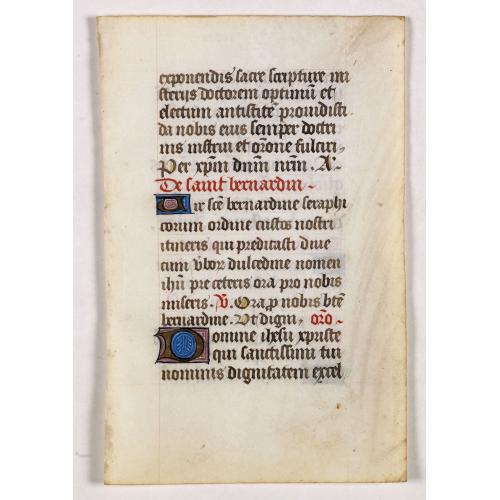 exponendis sacre scripture mi
sterijs doctorem optimū et
electum antistitē prouidisti.
da nobis eius semper doctri
nis instrui et orōne fulciri,
Per xp̄m dn̄m nr̄m. A.
De saint bernardin
Vir scē bernardine seraphi
corum ordine custos nostri
itineris qui predicasti diue
cum dulcedine nomen
ihū pre ceteris ora pro nobis
miseris. V. Ora p nobis btē
bernardine. Vt digni, orō
Domine ihesu xpriste
qui sanctissimi tui
nominis dignitatem excel